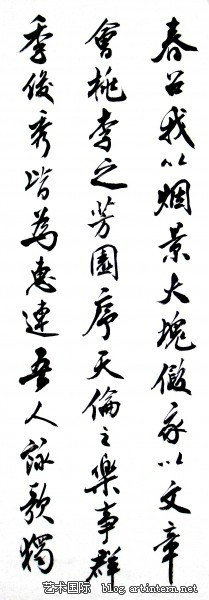 春召我以烟景大塊假我以文章
會桃李之芳園序天倫之樂事群
季俊秀皆為惠連吾人詠歌獨
艺术国际 / blog.artintern.net